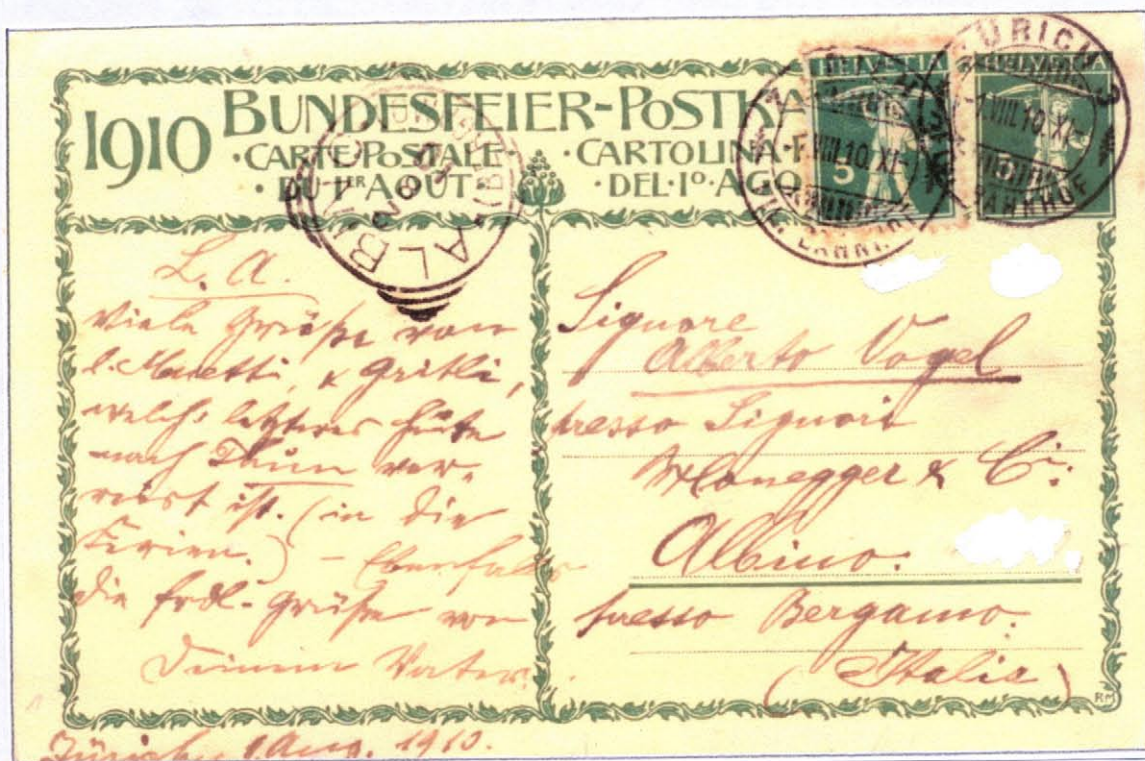 1910 BUNDESFEIER-POSTKA
·CARTE·POSTALE· ·CARTOLINA·
·DU·1ER AOÛT· ·DEL·1º·AGO
HELVETIA
5
HELVETIA
5
ZÜRICH 3
1.VIII.10.XI
BAHNHOF
ALBINO
L. A.
Viele Grüße von
l. Maetti, & Gritli,
welch' letzteres heute
nach Thun ver-
reist ist. (in die
Ferien.) – Ebenfalls
die frdl. Grüße von
Deinem Vater.
Zürich, 1. Aug. 1910.
Signore
Alberto Vogel
presso Signori
Honegger & Ci.
Albino.
presso Bergamo.
(Italia)
RM